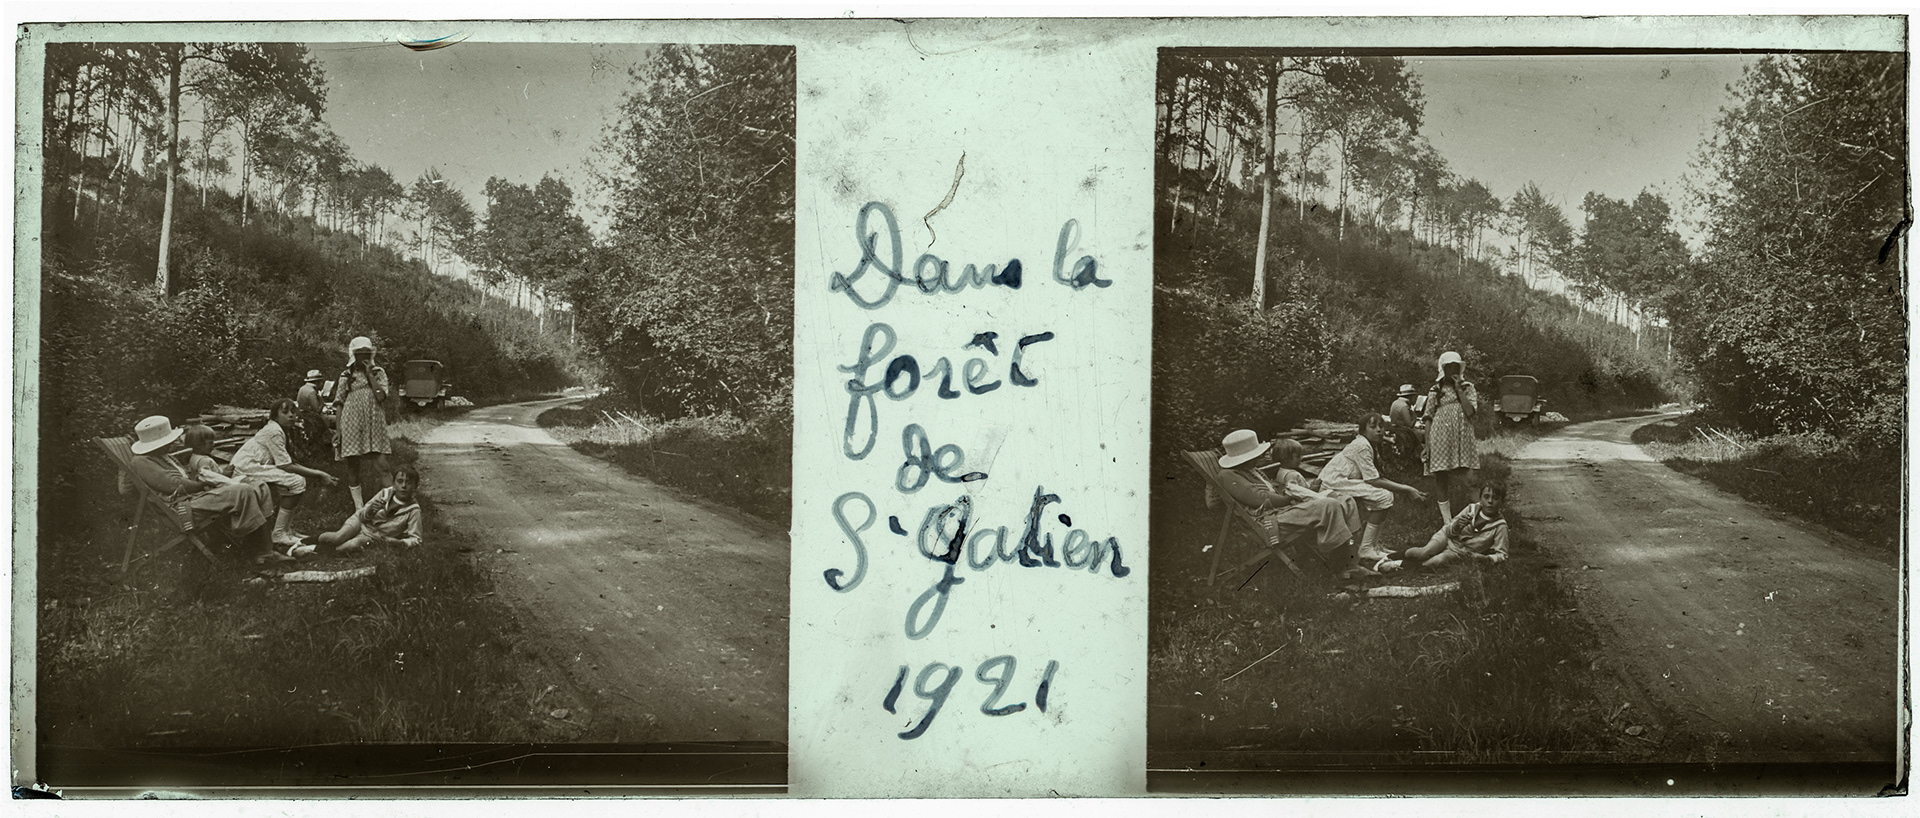 Dans la
forêt
de
St Gatien
1921